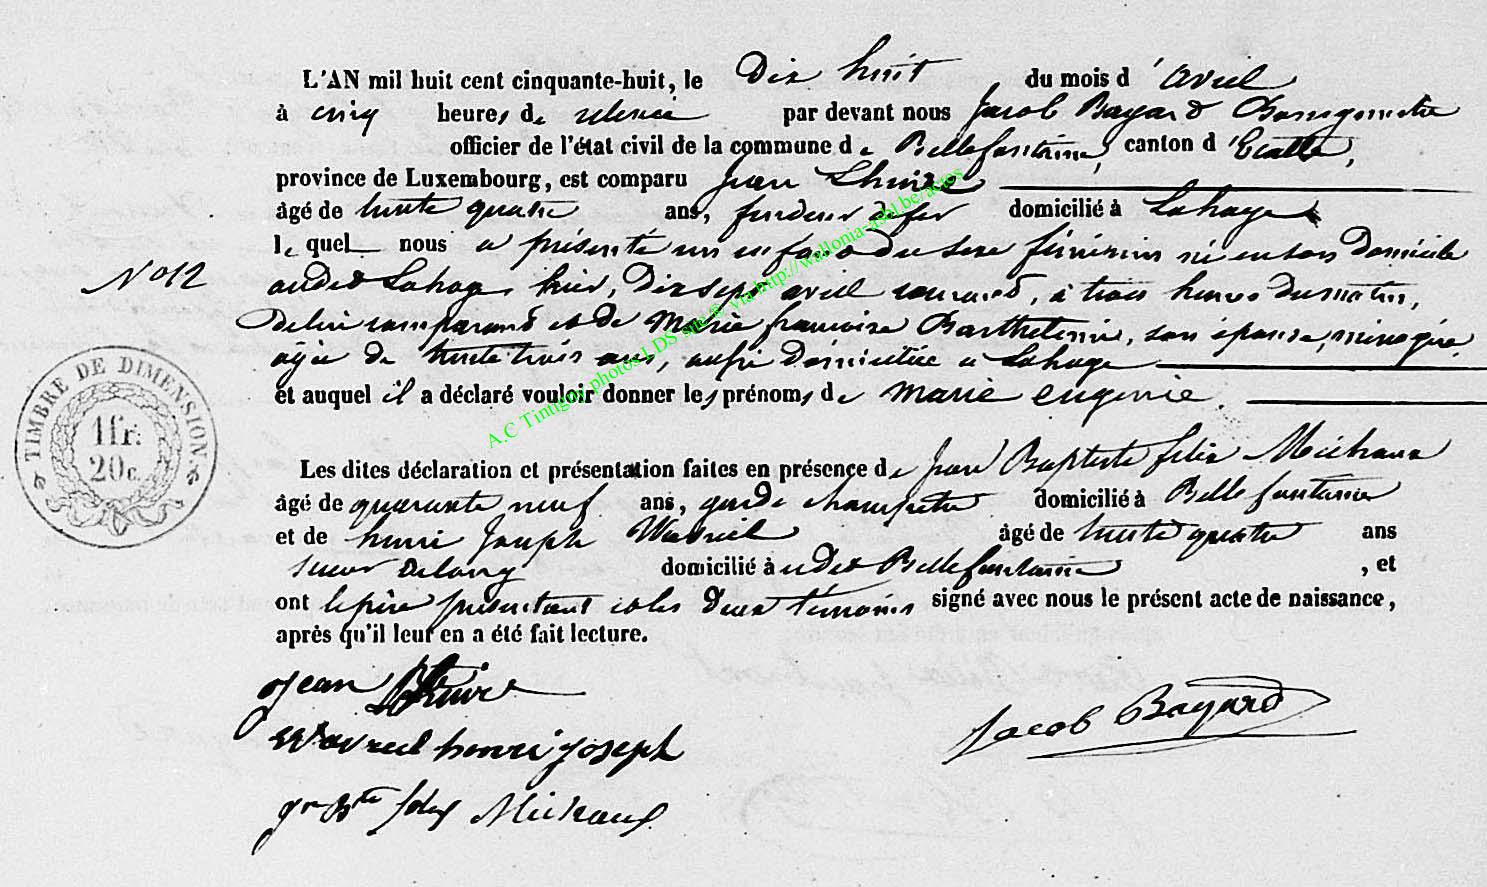 L'AN mil huit cent cinquante-huit, le Dix huit du mois d'avril
à cinq heures de relevée par devant nous Jacob Bayard Bourgmestre
officier de l'état civil de la commune de Bellefontaine, canton d'Etalle,
province de Luxembourg, est comparu Jean Lhuire
âgé de trente quatre ans, fondeur de fer domicilié à Lahage
lequel nous a présenté un enfant du sexe féminin né en son Domicile
N° 12
audit Lahage hier, Dix sept avril courant, à trois heures du matin,
De lui comparant et de Marie françoise Barthelemie, son épouse, ménagère,
agée de trente trois ans, aussi domiciliée a Lahage
et auquel il a déclaré vouloir donner les prénoms de Marie Eugenie.
TIMBRE DE DIMENSION
1 fr.
20 c.
Les dites déclaration et présentation faites en présence de Jean Baptiste félix Michaux
âgé de quarante neuf ans, garde champêtre domicilié à Bellefontaine
et de henri Joseph Wavreil âgé de trente quatre ans
domicilié à udit Bellefontaine, et
ont le père présentant et les deux témoins signé avec nous le présent acte de naissance,
après qu'il leur en a été fait lecture.
Jean Lhuire
Wavreil henri joseph
Jacob Bayard
jn Bte felix Michaux
A.C Tintigny photos LDS site & via http://wallonia-asbl.be/actes